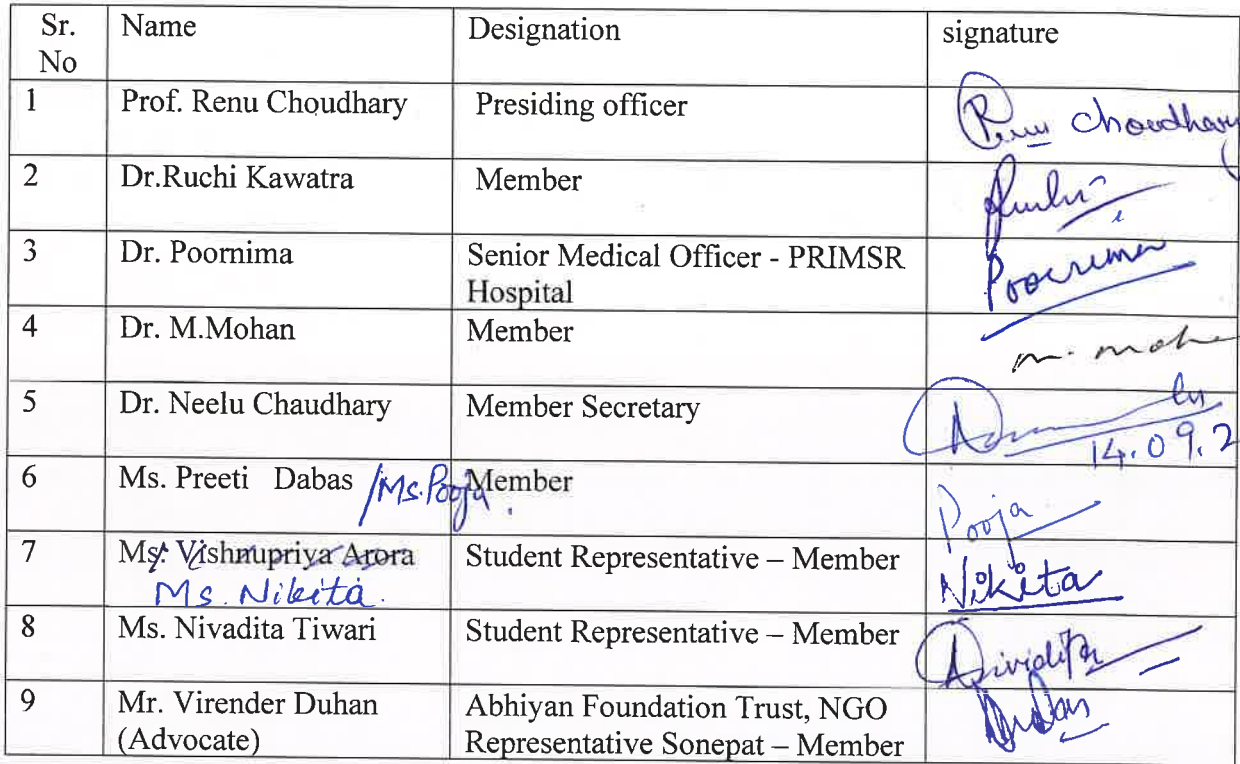 Sr. No Name Designation signature
1 Prof. Renu Choudhary Presiding officer Renu Choudhary
2 Dr.Ruchi Kawatra Member Ruchi
3 Dr. Poornima Senior Medical Officer - PRIMSR
Hospital Poornima
4 Dr. M.Mohan Member m. moh
5 Dr. Neelu Chaudhary Member Secretary
14.09.2
6 Ms. Preeti Dabas /Ms. Pooja. Member Pooja
7 Ms. Vishnupriya Arora Student Representative – Member Nikita
Ms. Nikita.
8 Ms. Nivadita Tiwari Student Representative – Member Nividita
9 Mr. Virender Duhan Abhiyan Foundation Trust, NGO
(Advocate) Representative Sonepat – Member